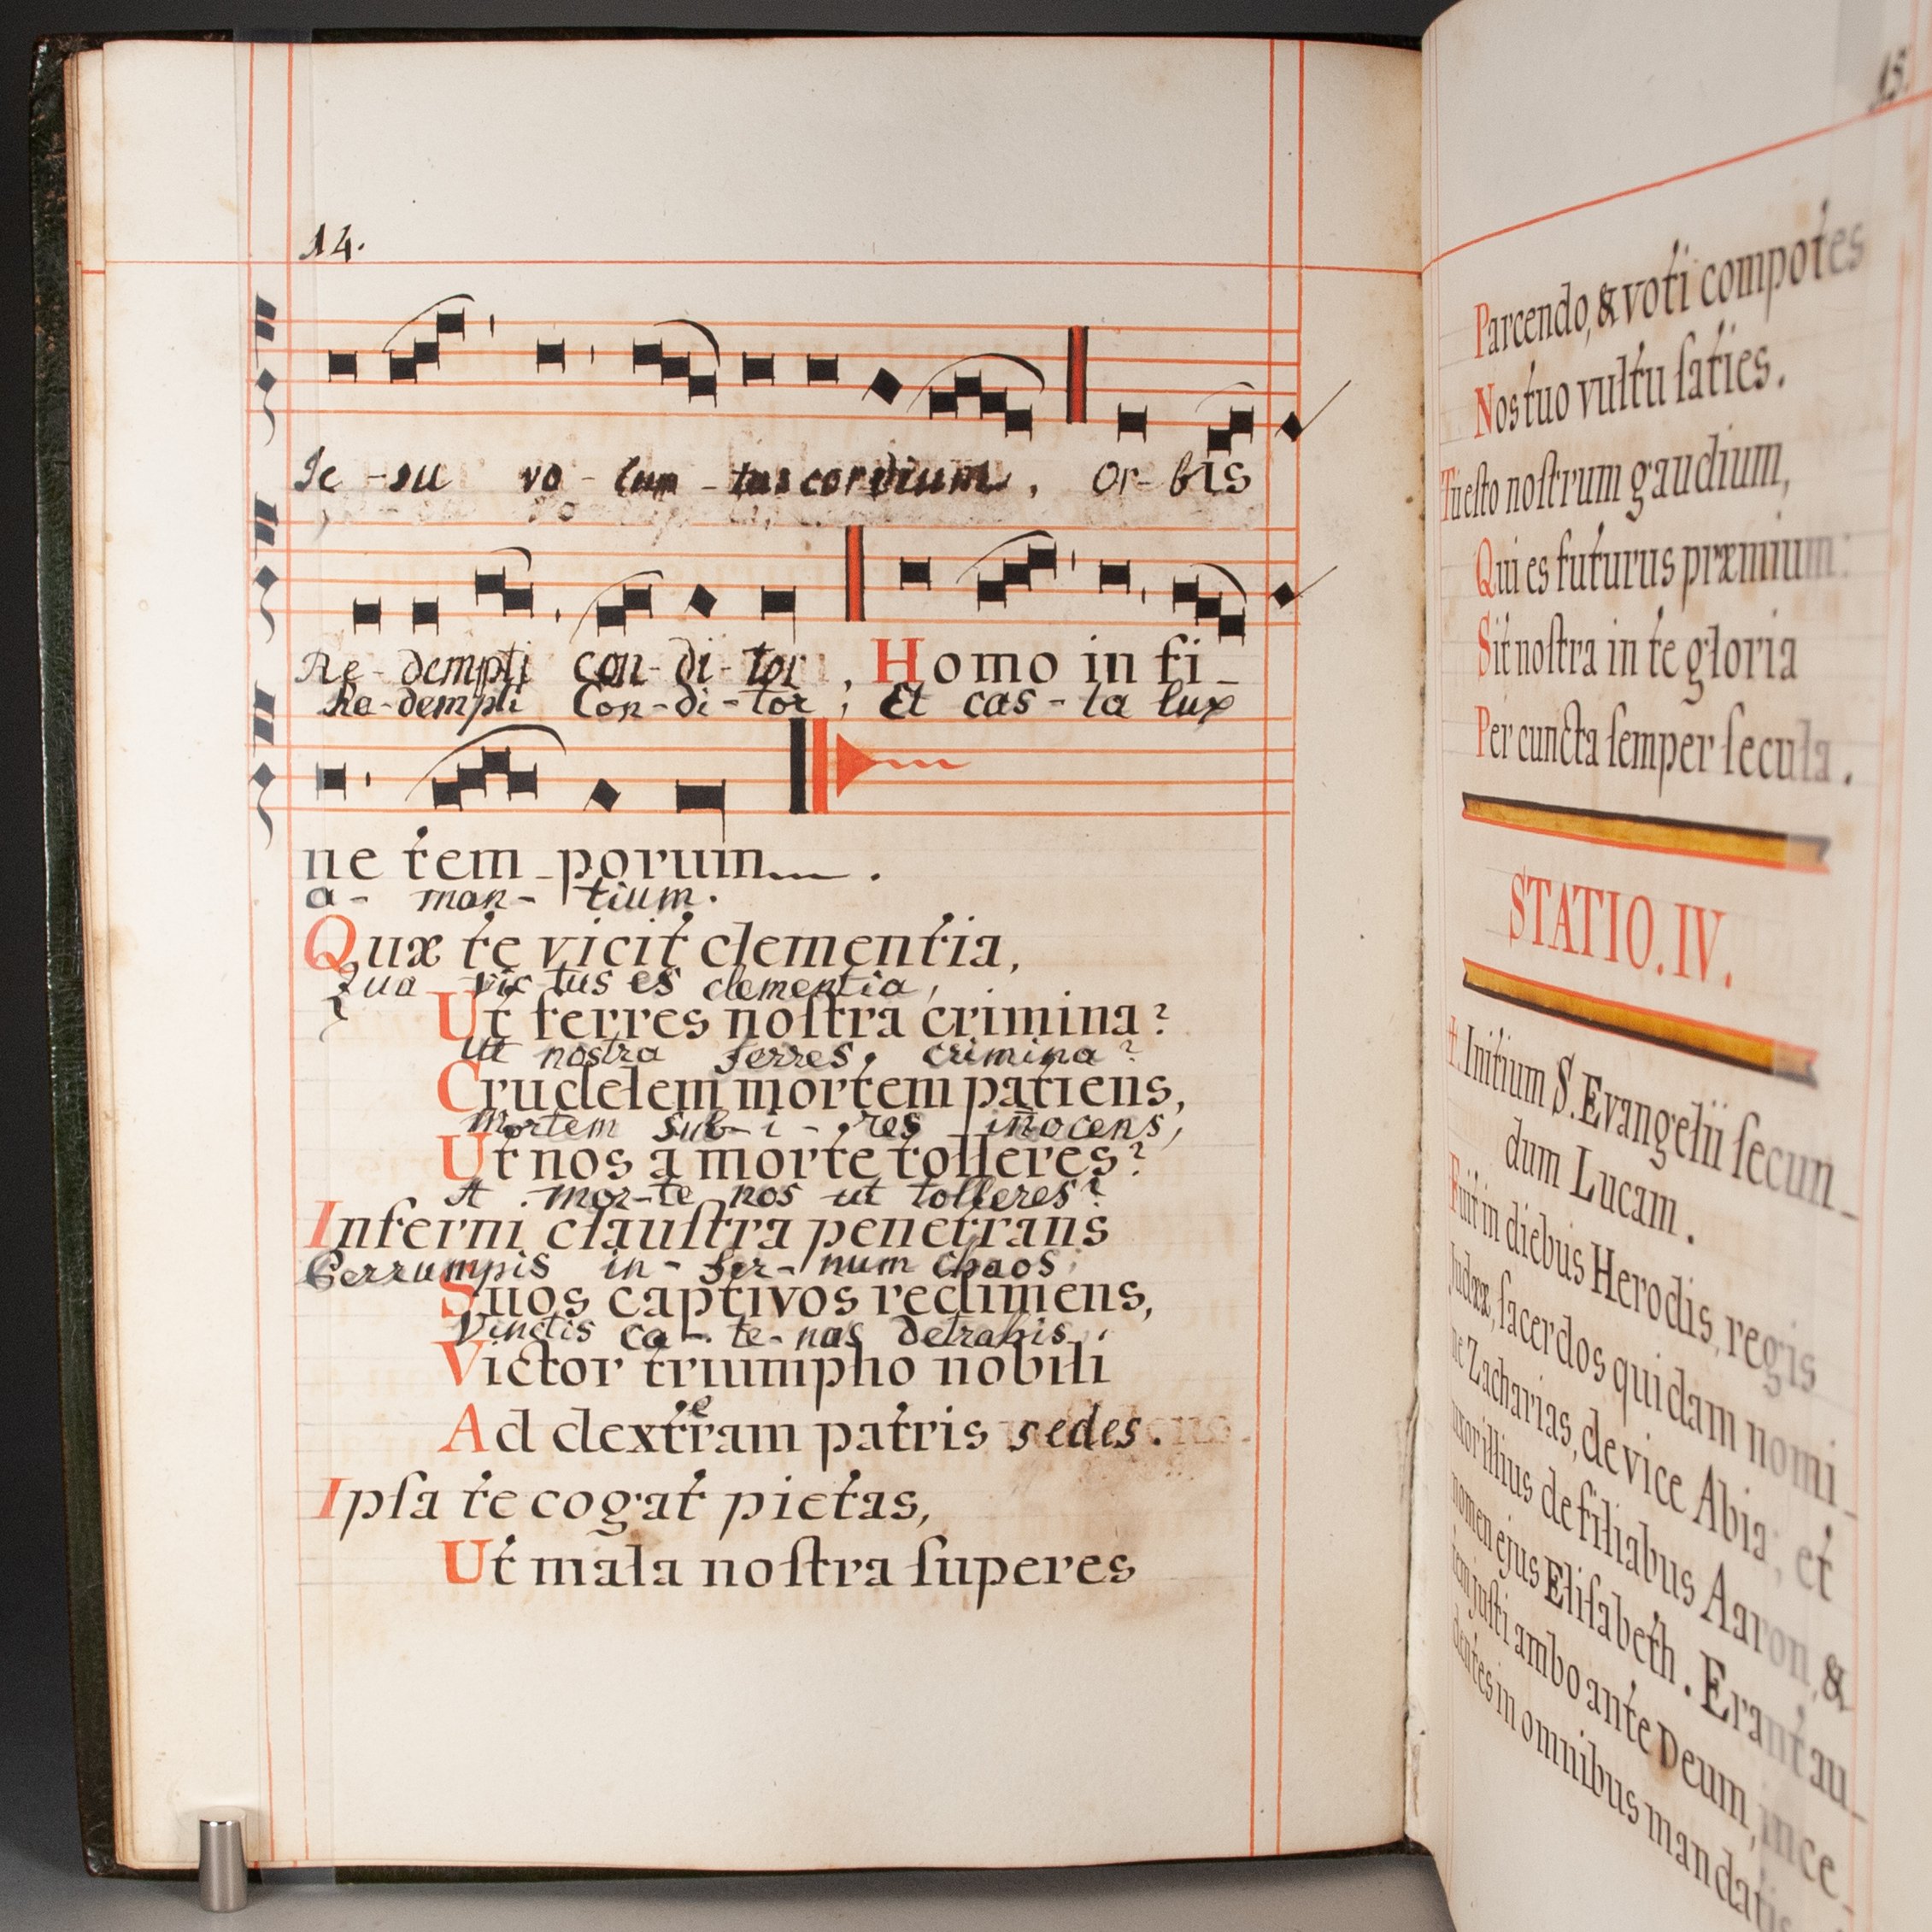 14.
Je - su vo - lup - tas cordium, Or - bis
Re - dempti con - di - tor, Homo in fi_
Re - dempti Con - di - tor; Et cas - ta lux
ne tem_porum .
a - man - tium.
Quæ te vicit clementia,
Qua vic tus es clementia,
Ut ferres noſtra crimina?
Ut nostra ferres, crimina?
Crudelem mortem patiens,
Mortem sub - i - res iñocens,
Ut nos a morte tolleres?
A mor - te nos ut tolleres?
Inferni clauſtra penetrans
Perrumpis in - fer - num chaos;
Suos captivos redimens,
Vinctis ca - te - nas detrahis,
Victor triumpho nobili
Ad dextram patris sedes.
Ipſa te cogat pietas,
Ut mala noſtra ſuperes
15.
Parcendo, & voti compotes
Nos tuo vultu ſaties.
Tu eſto noſtrum gaudium,
Qui es futurus præmium:
Sit noſtra in te gloria
Per cuncta ſemper ſecula.
STATIO. IV.
†. Initium S. Evangelii ſecun_
dum Lucam.
Fuit in diebus Herodis, regis
Judææ, ſacerdos quidam nomi_
ne Zacharias, de vice Abia; et
uxor illius de filiabus Aaron, &
nomen ejus Eliſabeth. Erant au_
tem juſti ambo ante Deum, ince_
dentes in omnibus mandatis